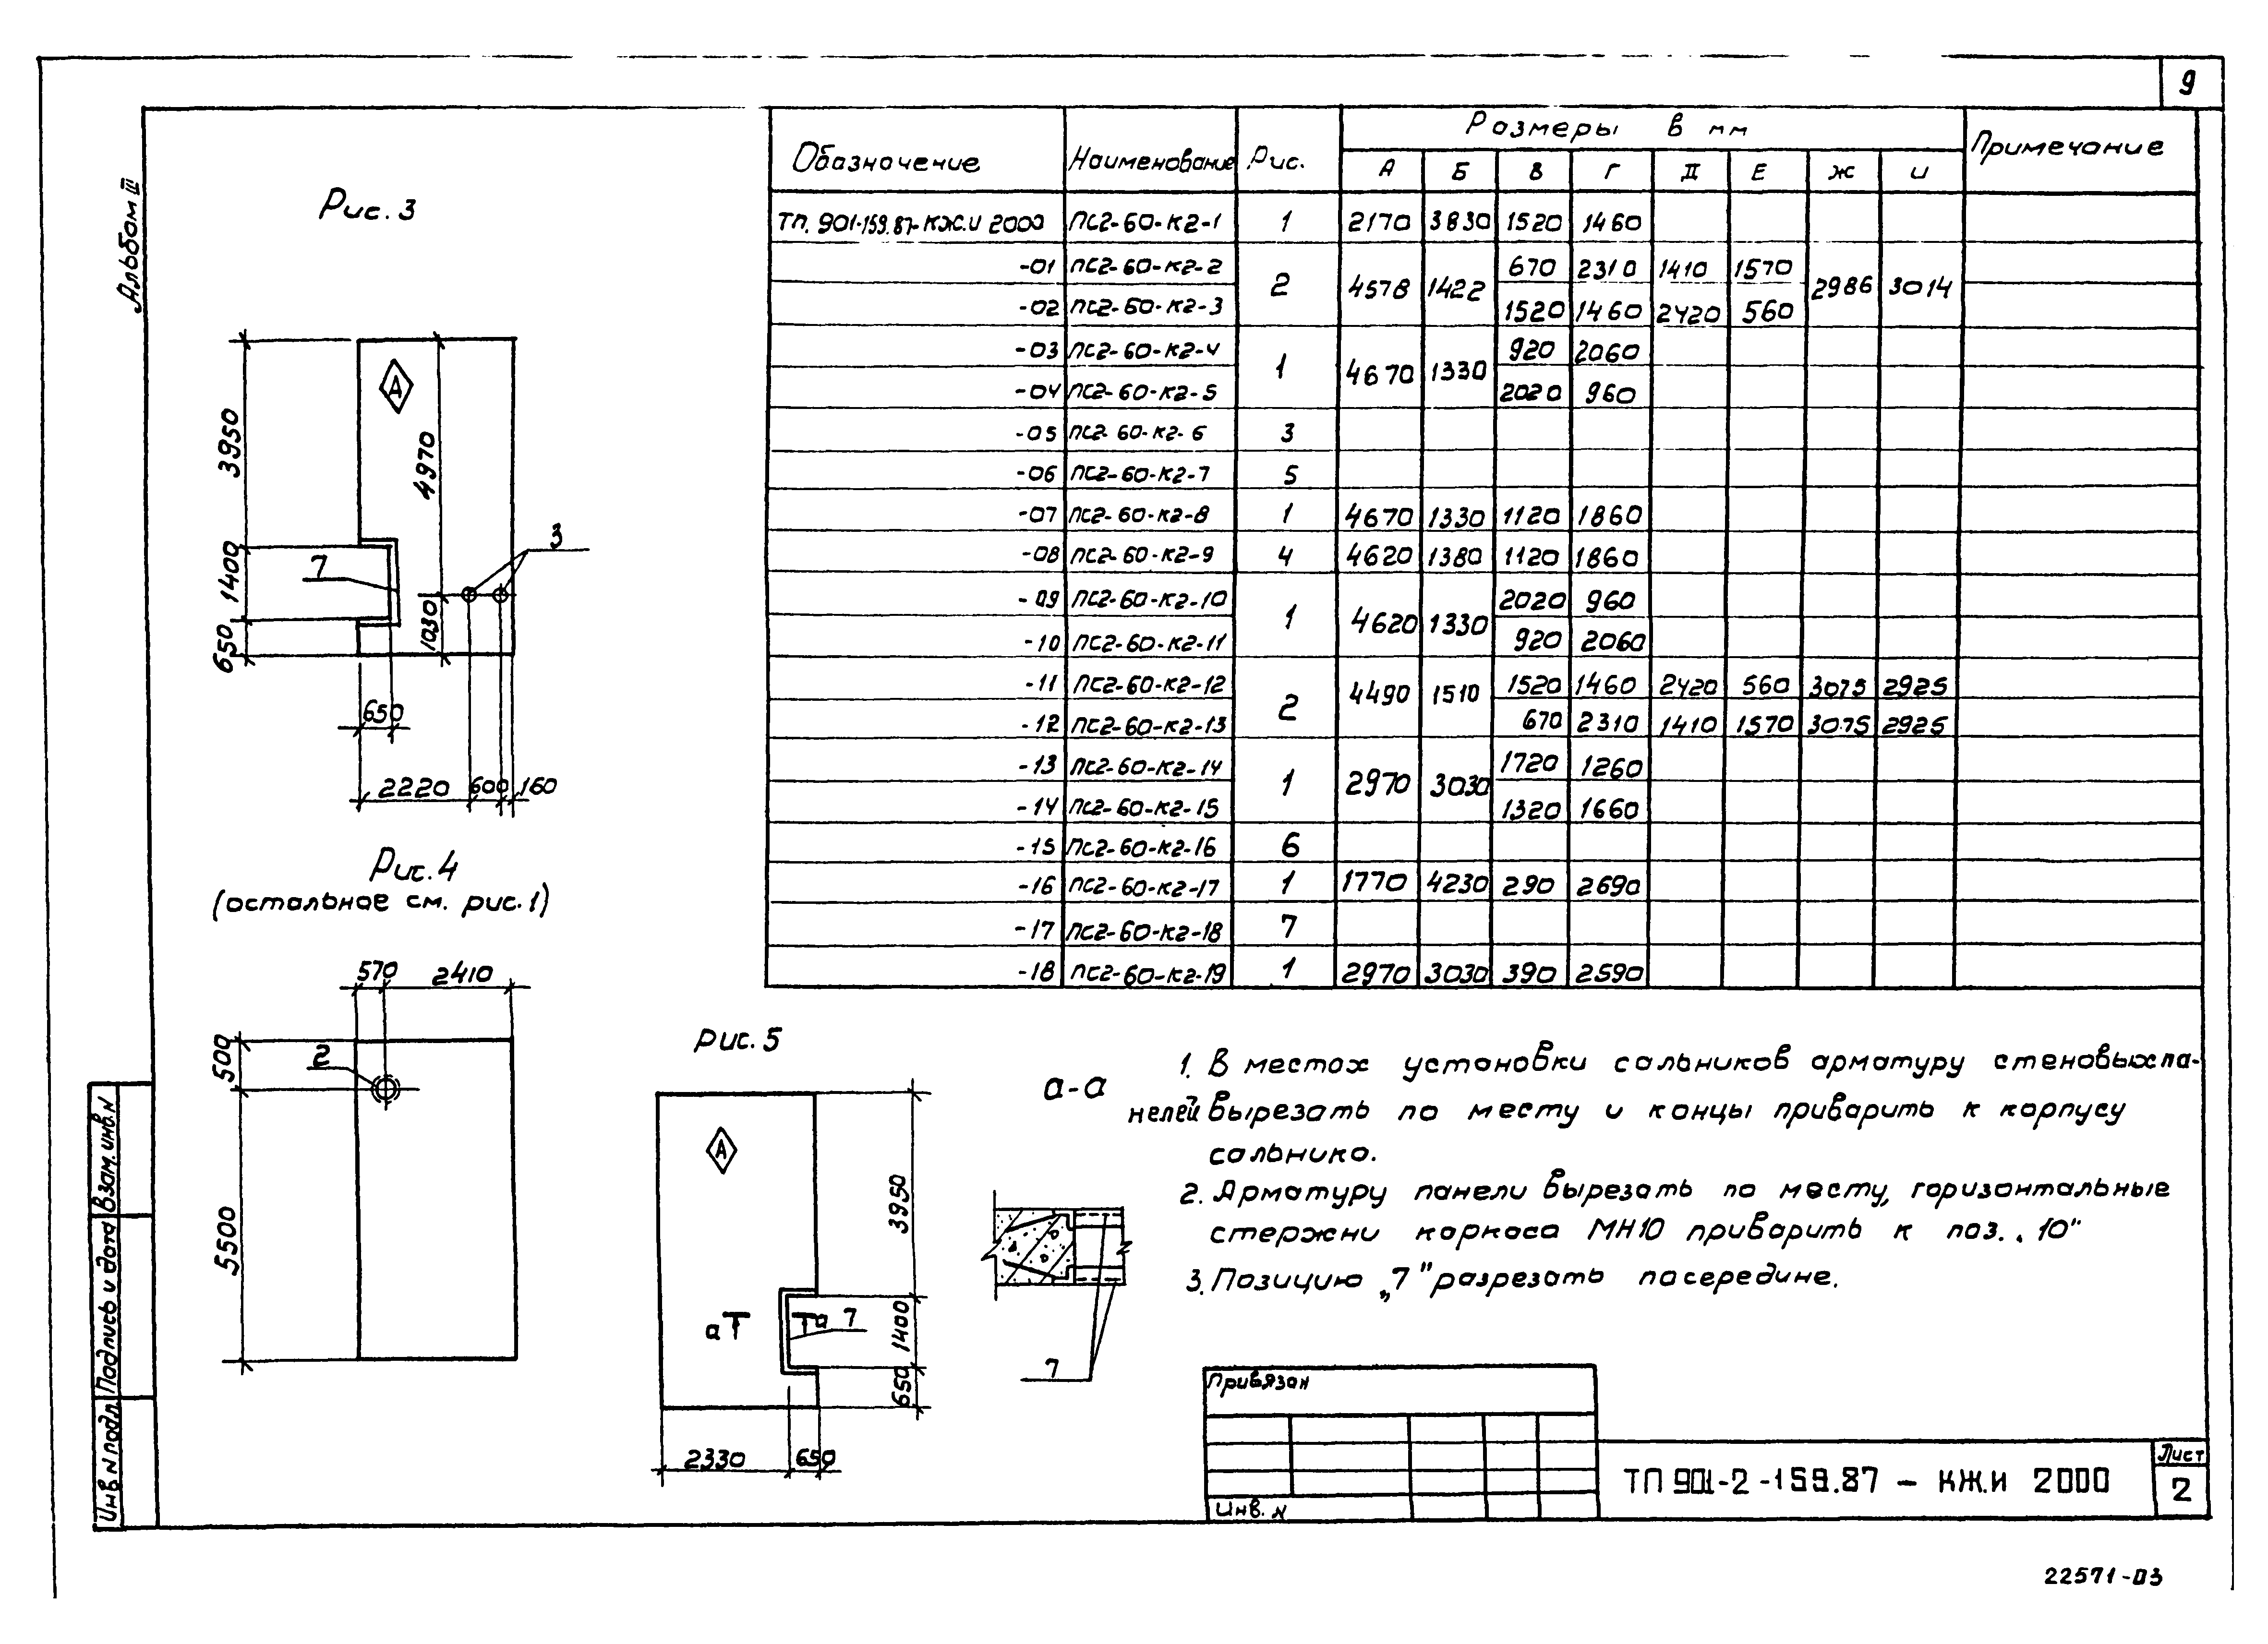 9
Альбом III
Рис. 3
3950
1400
650
4970
1030
7
3
А
650
2220 600 160
Рис. 4
(остальное см. рис. 1)
570 2410
500
5500
2
Рис. 5
А
3950
1400
650
а а 7
2330 650
а-а
7
Обозначение Наименование Рис. Размеры в мм Примечание
А Б В Г Д Е Ж И
ТП. 901-159.87-КЖ.И 2000 ПС2-60-К2-1 1 2170 3830 1520 1460
-01 ПС2-60-К2-2 2 4578 1422 670 2310 1410 1570 2986 3014
-02 ПС2-60-К2-3 1520 1460 2420 560
-03 ПС2-60-К2-4 1 4670 1330 920 2060
-04 ПС2-60-К2-5 2020 960
-05 ПС2-60-К2-6 3
-06 ПС2-60-К2-7 5
-07 ПС2-60-К2-8 1 4670 1330 1120 1860
-08 ПС2-60-К2-9 4 4620 1380 1120 1860
-09 ПС2-60-К2-10 1 4620 1330 2020 960
-10 ПС2-60-К2-11 920 2060
-11 ПС2-60-К2-12 2 4490 1510 1520 1460 2420 560 3075 2925
-12 ПС2-60-К2-13 670 2310 1410 1570 3075 2925
-13 ПС2-60-К2-14 1 2970 3030 1720 1260
-14 ПС2-60-К2-15 1320 1660
-15 ПС2-60-К2-16 6
-16 ПС2-60-К2-17 1 1770 4230 290 2690
-17 ПС2-60-К2-18 7
-18 ПС2-60-К2-19 1 2970 3030 390 2590
1. В местах установки сальников арматуру стеновых па-
нелей вырезать по месту и концы приварить к корпусу
сальника.
2. Арматуру панели вырезать по месту, горизонтальные
стержни каркаса МН10 приварить к поз. „10"
3. Позицию „7" разрезать посередине.
Привязан
Инв. N
ТП 901-2-159.87 - КЖ.И 2000
Лист
2
Взам. инв. N
Подпись и дата
Инв. N подл.
22571-03